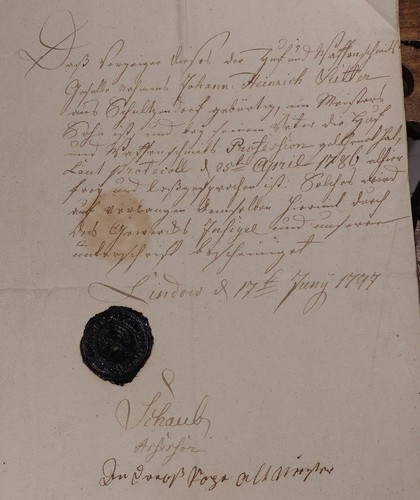 Daß Vorzeiger dieses der Huf und Waffenschmidt
Geselle nahmens Johann Heinrich
aus Schultzendorf gebürtig, ein Meisters
Sohn ist, und bey seinem Vater die Huf
und Waffenschmidt Profession gelernet hat,
laut Protocoll d 25t April 1786 alhier
frey und loßgesprochen ist. Solches wird
auf verlangen demselben hiermit durch
des Gewercks Insigel und unserer
unterschrift bescheiniget
Lindow d 17t Juny 1797
Schaub
Altmeister